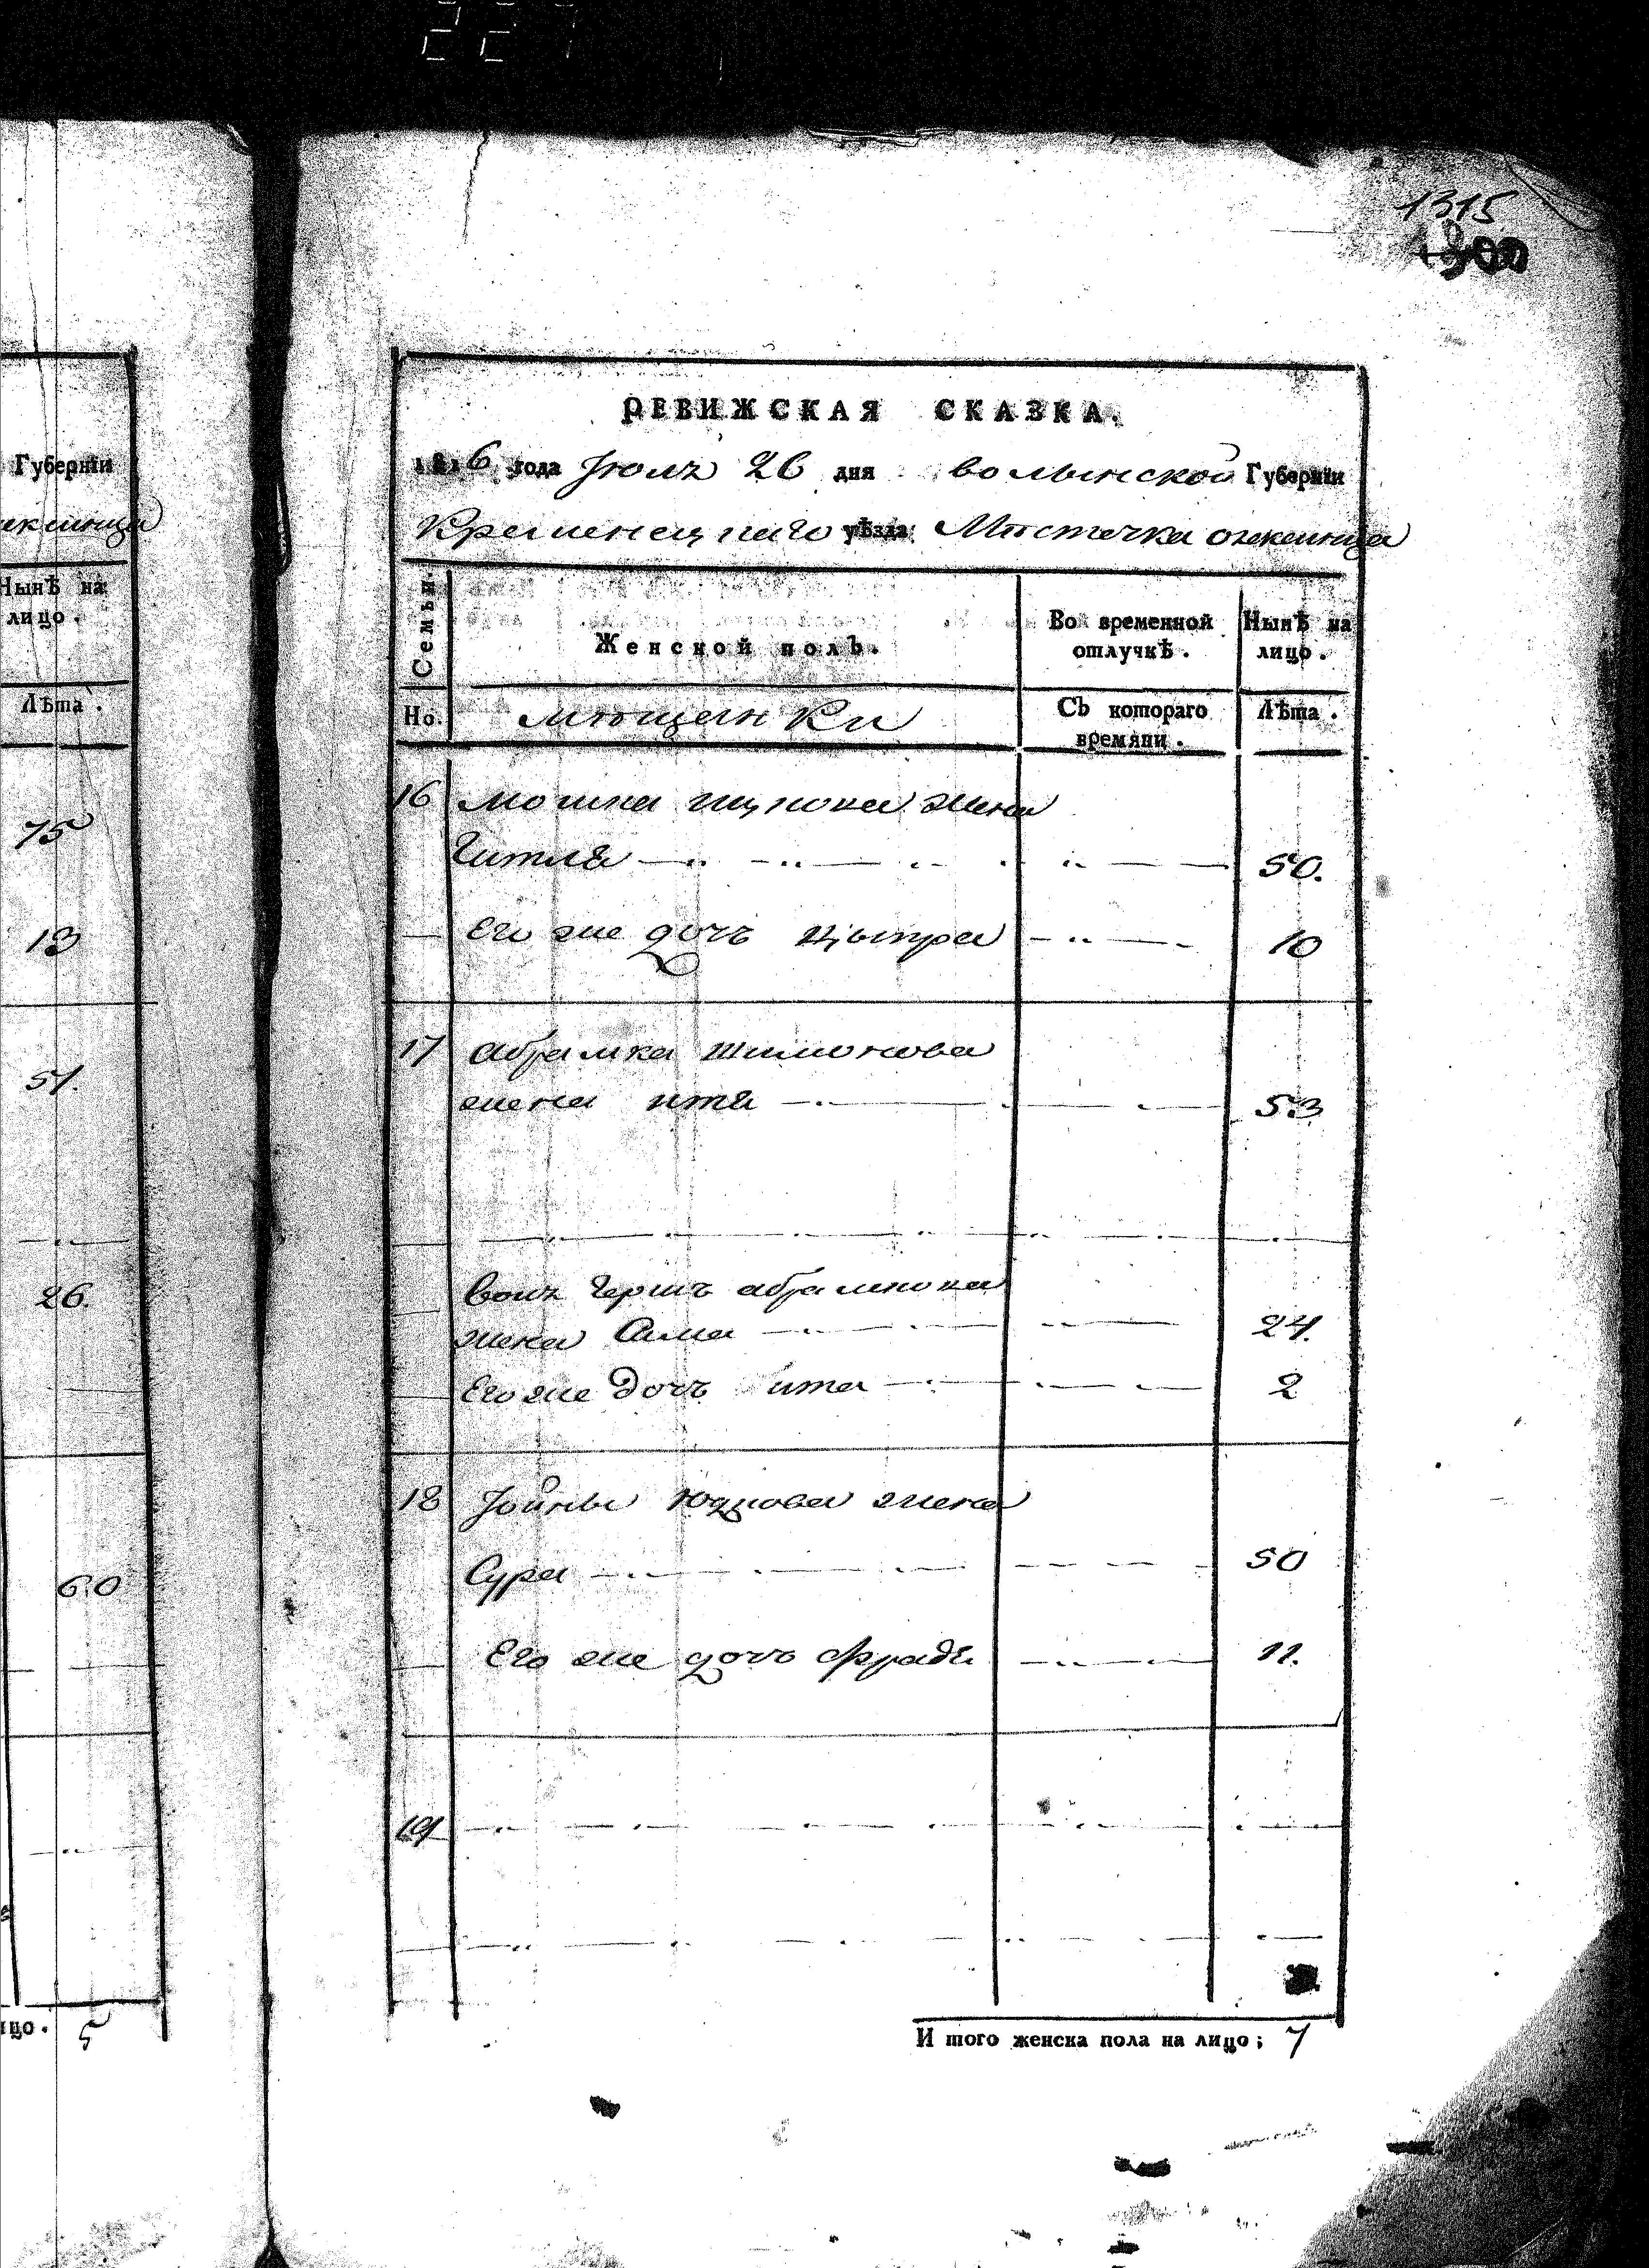 1315
Губерніи
Нынѣ на
лицо.
Лѣта.
75
13
51.
26.
60
5
РЕВИЖСКАЯ СКАЗКА.
1816 года Іюль 26 дня волынской Губерніи
Кременецкаго уѣзда Мѣстечка
Семьи.
Женской полъ.
Во временной отлучкѣ.
Нынѣ на лицо.
Но.
мѣщанки
Съ котораго времяни.
Лѣта.
16 мошка ицкова жена
Гитля 50.
Его же дочь Цыпра 10
17 абрамка шимонова
жена итя 53
жена 24.
Его же дочь ита 2
18 Іойны жена
Сура 50
Его же дочь Фрадя 11.
19
И того женска пола на лицо; 7